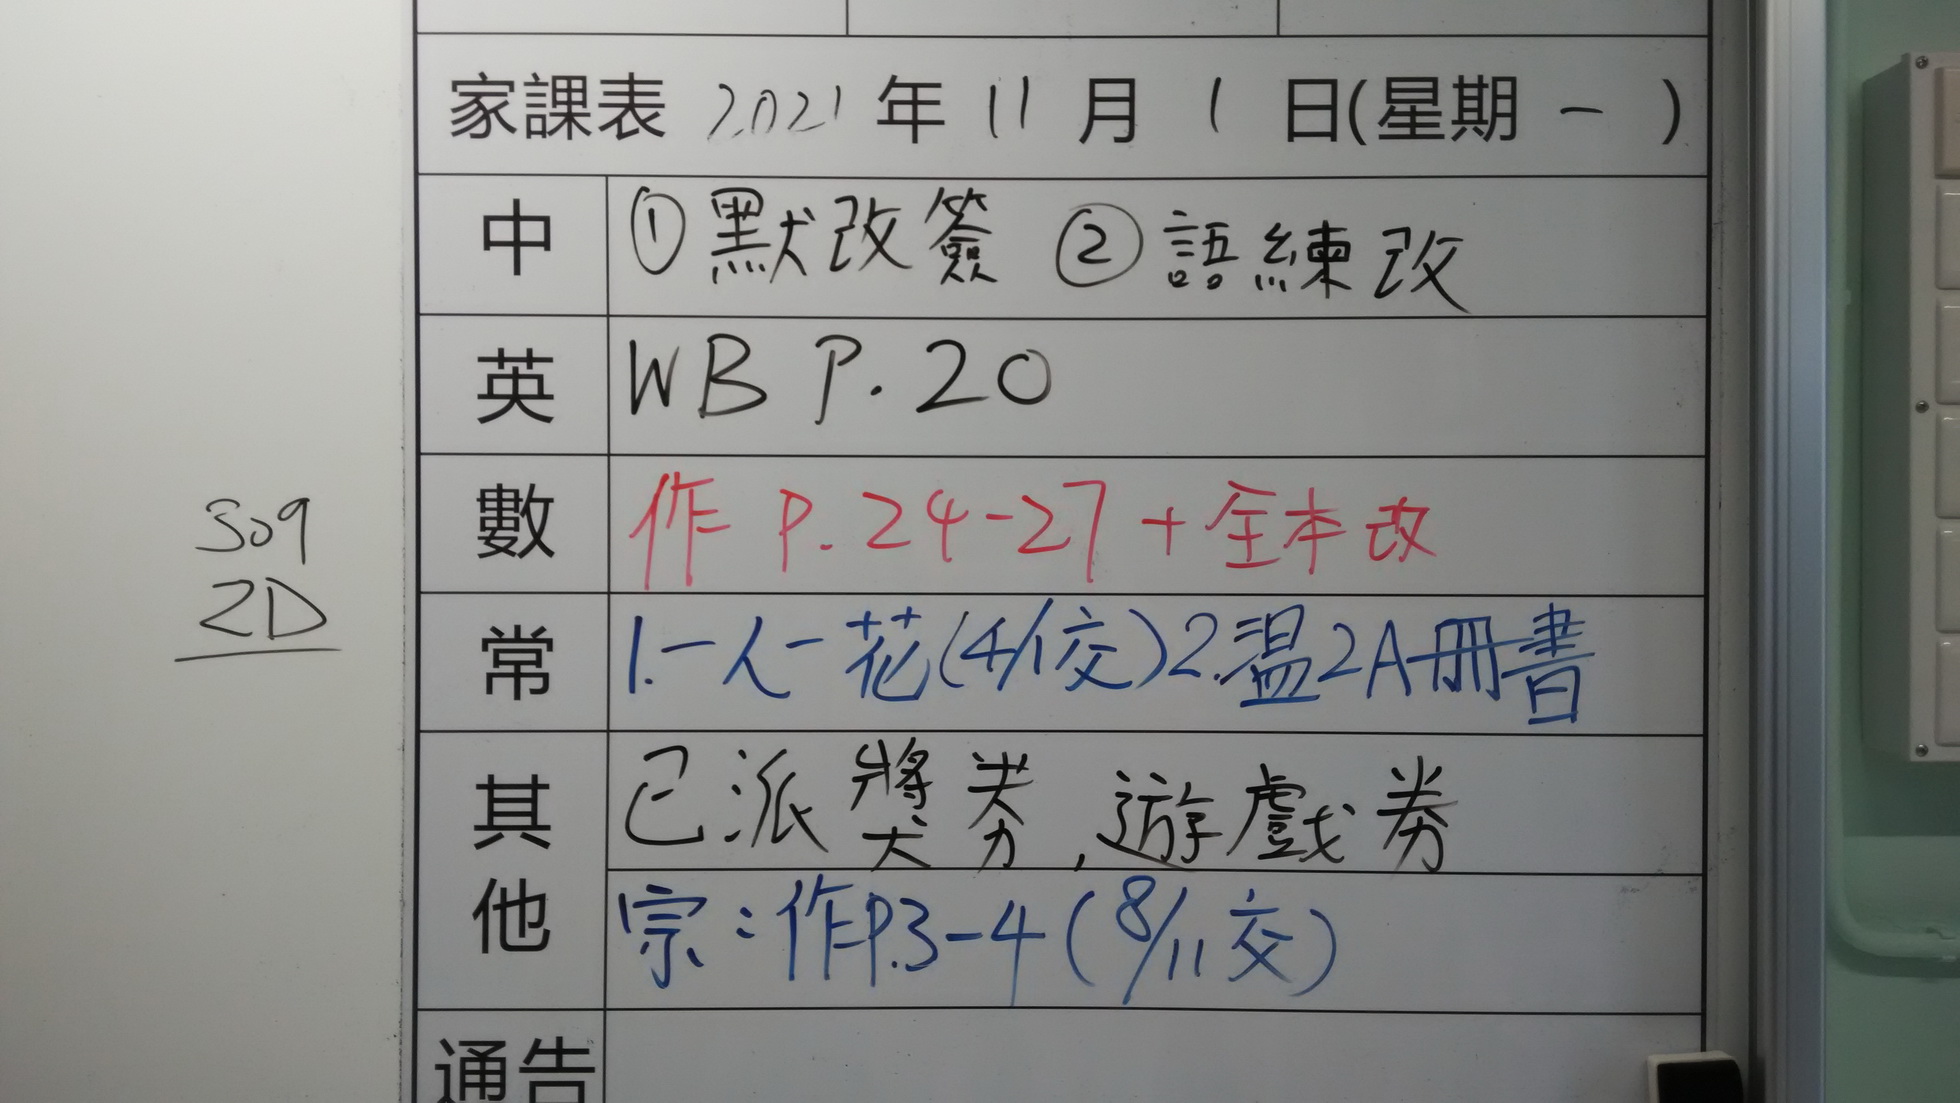 家課表 2021 年 11 月 1 日(星期 一 )
中 ①默改簽 ②語練改
英 WB P.20
數 作 P.24-27 + 全本改
常 1.一人一花(4/1交)2.溫2A冊書
其他 已派獎券,遊戲券
宗:作P.3-4(8/11交)
通告
S09
2D